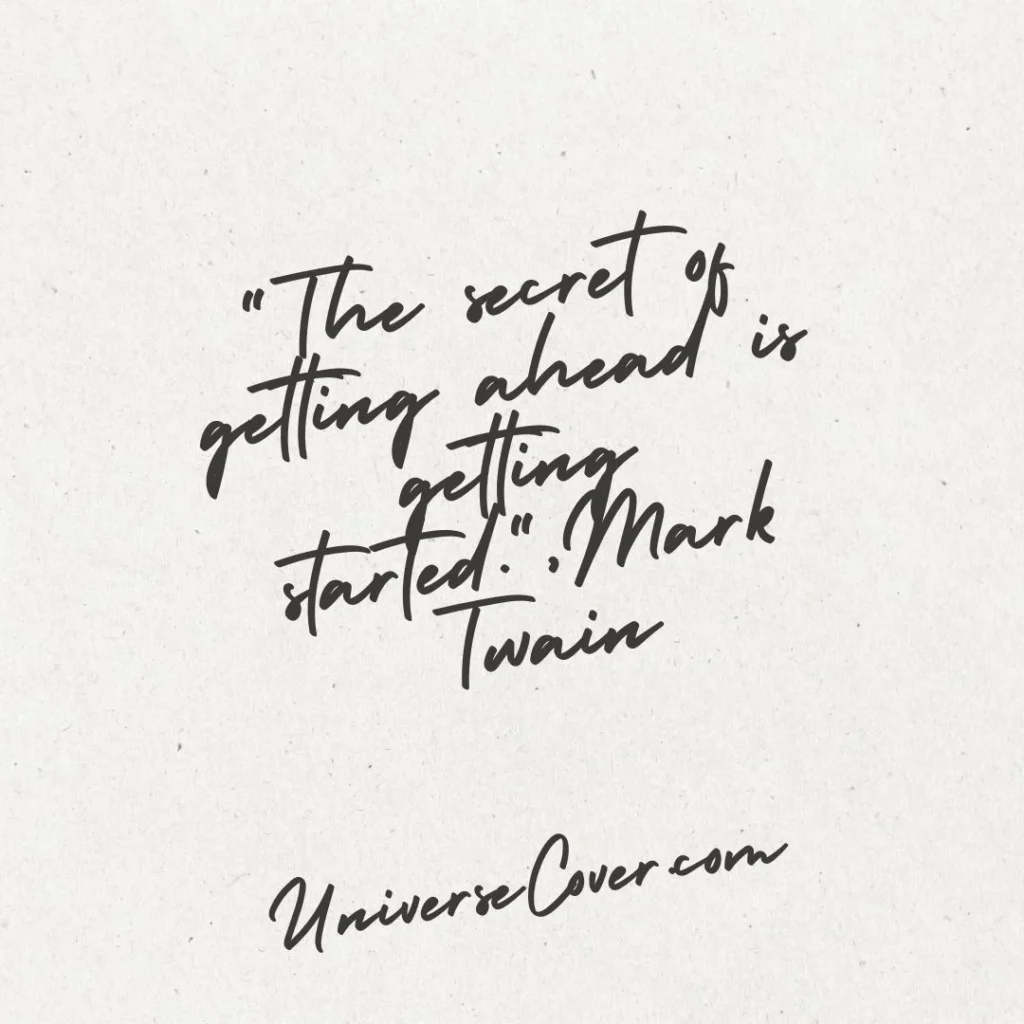 "The secret of
getting ahead is
getting
started.",Mark
Twain
UniverseCover.com